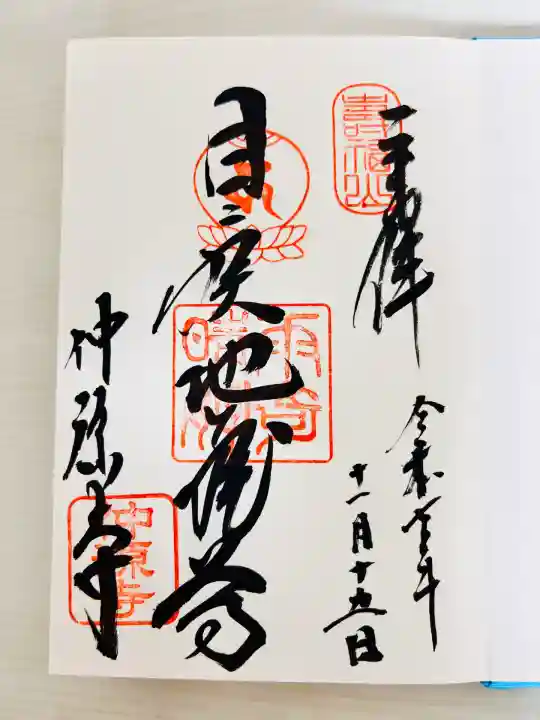 奉拝
壽福山
令和六年
十一月十五日
目疾地蔵尊
仲源寺
仲源寺